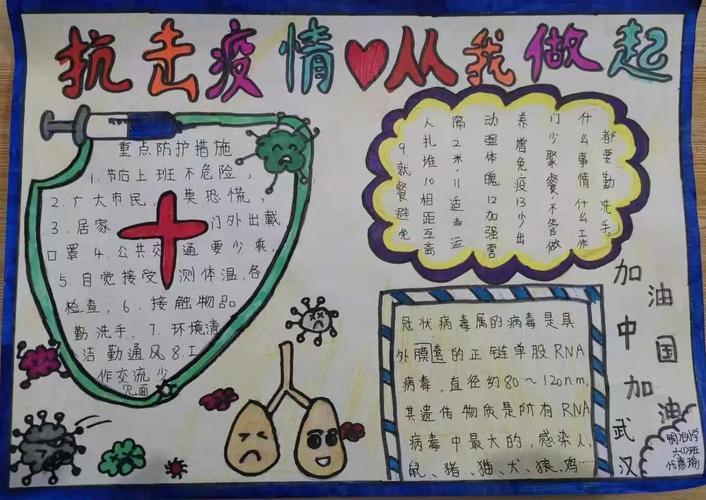 抗击疫情❤从我做起
重点防护措施
1.节后上班不危险,
2.广大市民,莫恐慌,
3.居家门外出戴
口罩 4.公共交通要少乘,
5.自觉接受测体温,各
检查,6.接触物品
勤洗手,7.环境清
洁勤通风8.工
作交流少
见面
9就餐避免
人扎堆10相距互离
隔2米,11适当运
动强体魄12加强营
养增免疫13少出
门少聚餐,不管做
什么事情什么工作
都要勤洗手。
冠状病毒属的病毒是具
外膜套的正链单股RNA
病毒,直径约80~120nm,
其遗传物质是所有RNA
病毒中最大的,感染人、
鼠、猪、猫、犬、狼、鸡……
加油
中国
加油
武汉